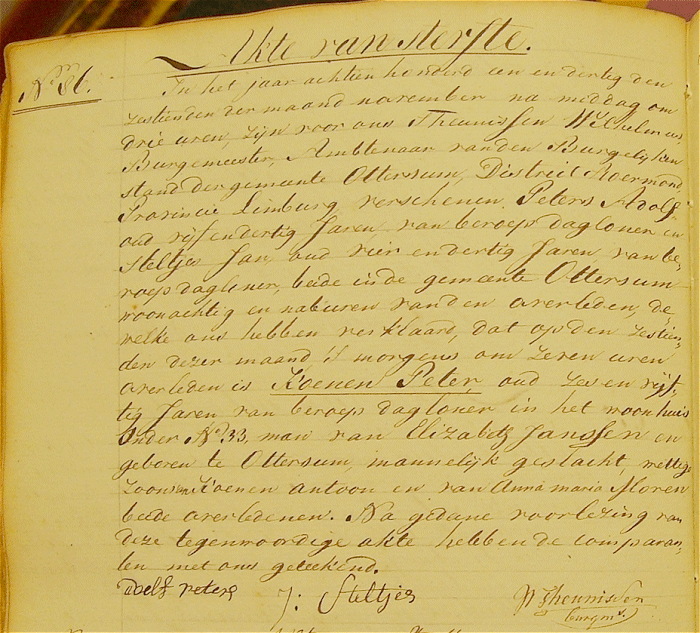 Akte van sterfte.
No. 86.
In het jaar achtien honderd een en dertig den
zestienden der maand november na middag om
drie uren, zijn voor ons Theunissen Wilhelmus,
Burgemeester, Ambtenaar van den Burgelyken
stand der gemeente Ottersum, District Roermond,
Provincie Limburg verschenen, Peters Adolf
oud vijf en dertig Jaren van beroep dagloner en
Steltjes Jan, oud vier en dertig Jaren, van be-
roep dagloner, beide in de gemeente Ottersum
woonachtig en naburen van den overleden, de-
welke ons hebben verklaard, dat op den zestien-
den dezer maand 's morgens om zeven uren
overleden is Koenen Peter, oud zes en vijf-
tig Jaren van beroep dagloner in het woonhuis
onder No. 33, man van Elizabeth Janssen en
geboren te Ottersum, mannelijk geslacht, wettige
zoon van Koenen antoon en van Anna maria Floren
beide overledenen. Na gedane voorlezing van
deze tegenwoordige akte hebben de comparan-
ten met ons geteekend.
adolf peters J: Steltjes W Theunissen
burgmr.